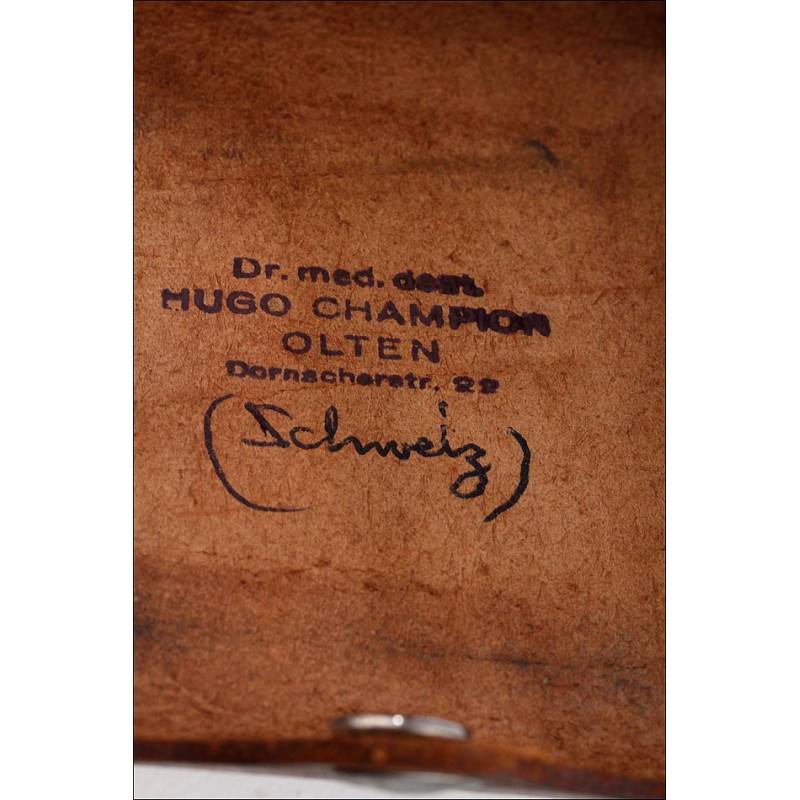 Dr. med. dent.
HUGO CHAMPION
OLTEN
Dornacherstr. 22
(Schweiz)